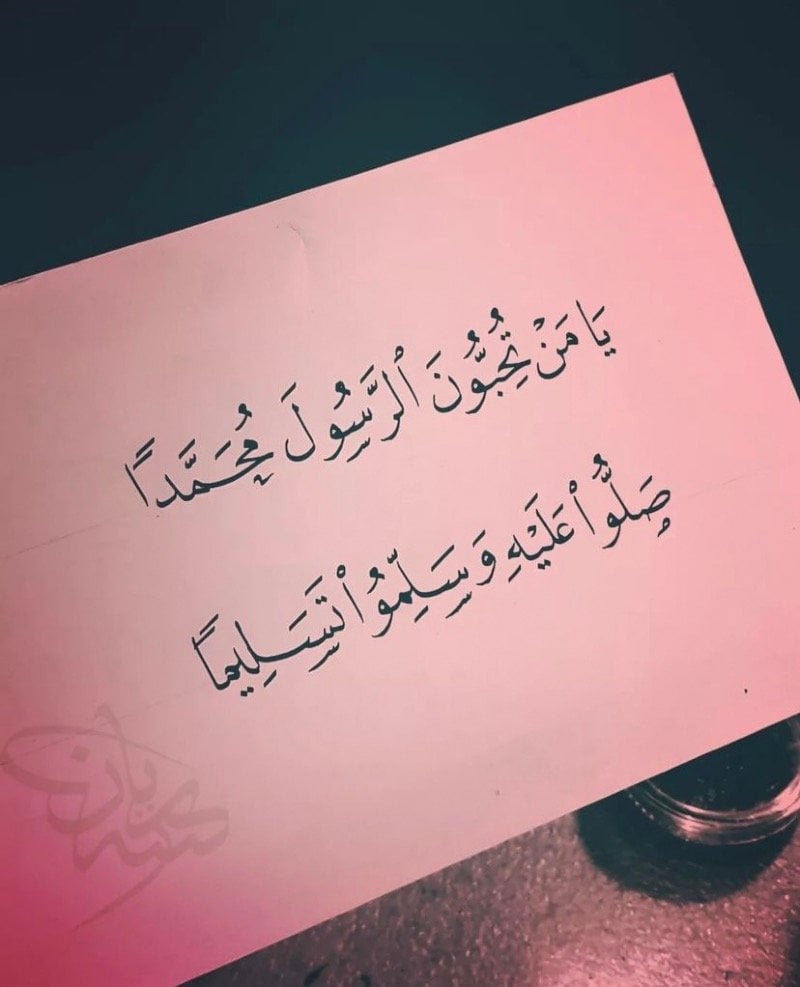 يَا مَنْ تُحِبُّونَ ٱلرَّسُولَ مُحَمَّدًا
صَلُّوا۟ عَلَيْهِ وَسَلِّمُوا۟ تَسَلِيمًا